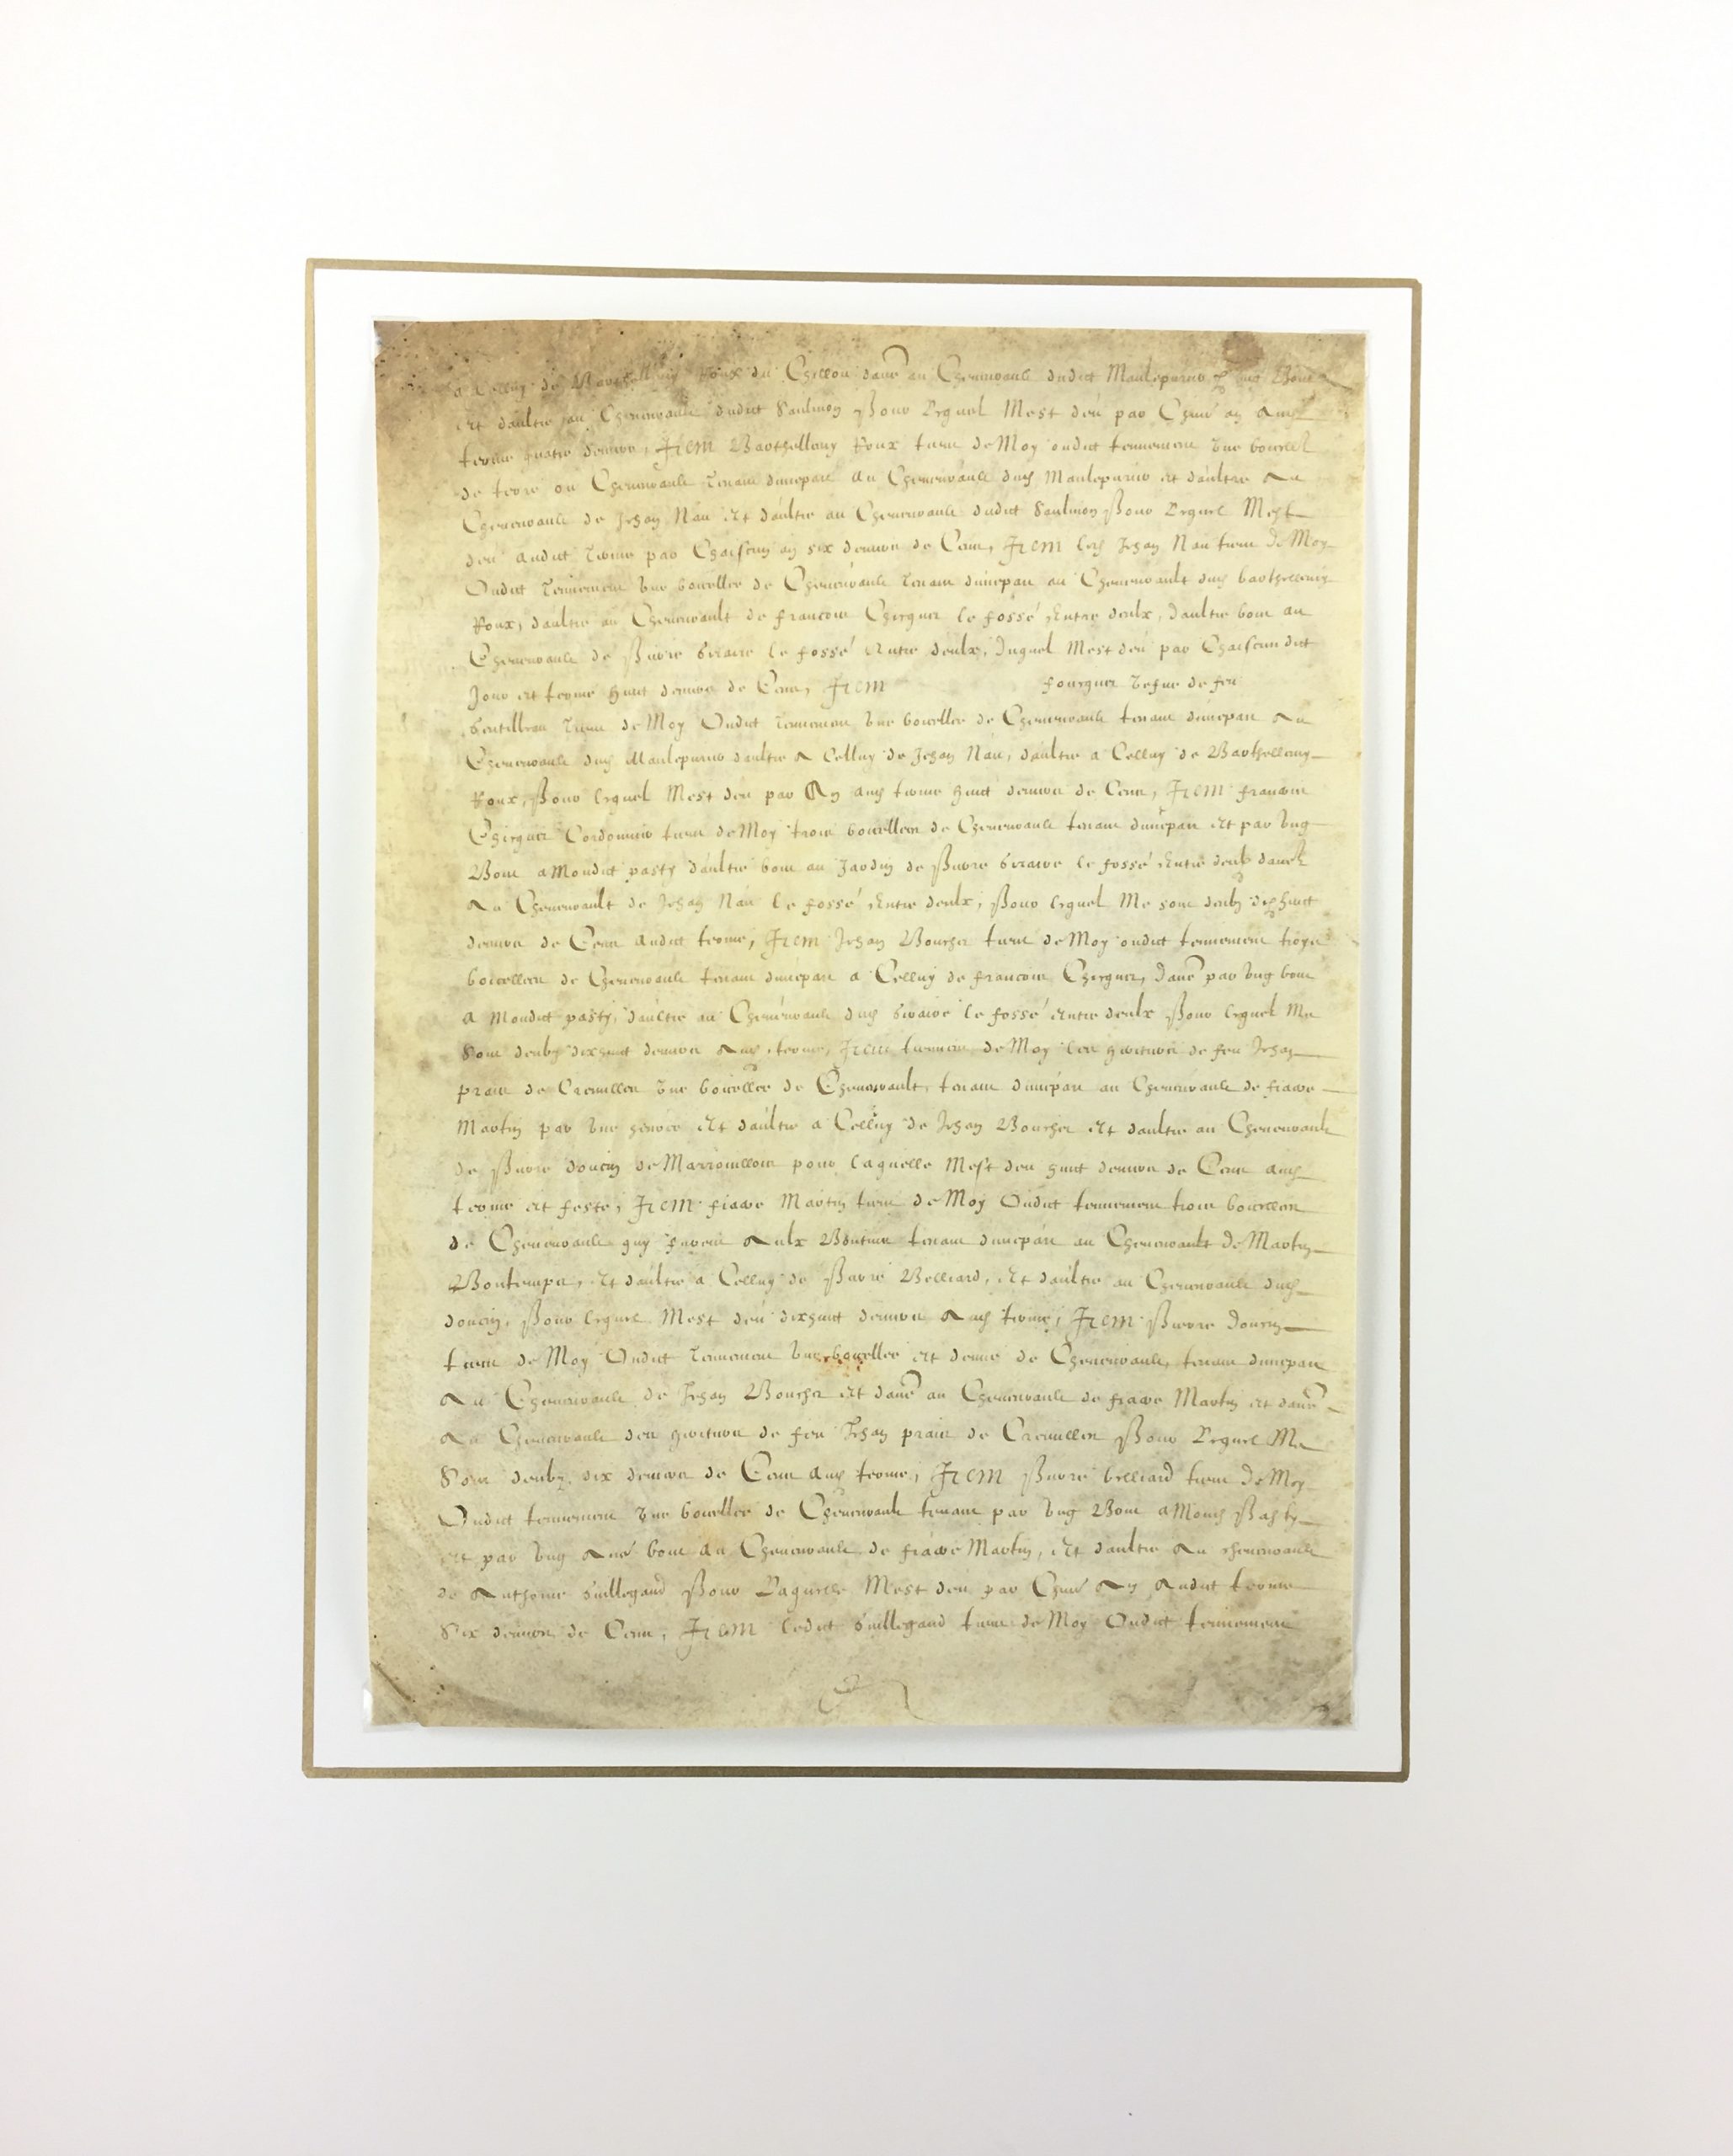 a Celluy de Barthellemy Roux du Chillou dault au Chenevault dudict Maulepurier p ung Bout
Et daultre au Chenevault dudict Saulmon Pour Lequel Mest deu par Chun an audt
terme quatre deniers, Item Barthellemy Roux tient de Moy oudict tennement Une bouessel
de terre ou Chenevault Tenant dunepart au Chenevault dudt Maulepurier et daultre Au
Chenevault de Jehan Nau Et daultre au Chenevault dudict Saulmon Pour Lequel Mest
deu audict Terme par Chaiscun an six deniers de Cens, Item ledt Jehan Nau tient de Moy
Oudict Tennement Une boucellee de Chenevault Tenant dunepart au Chenevault dudt barthellemy
Roux, daultre au Chenevault de francois Cherguer le fossé Entre deulx, daultre bout au
Chenevault de Pierre Giraire le fossé Entre deulx, Duquel Mest deu par Chaiscun dict
Jour et terme huict deniers de Cens, Item fourguer Vefue de feu
Gentilleau Tient de Moy Oudict Tennement Une boucellee de Chenevault tenant dunepart Au
Chenevault dudt Maulepurier daultre A Celluy de Jehan Nau, daultre a Celluy de Barthellemy
Roux, Pour lequel Mest deu par An audt terme huict deniers de Cens, Item francois
Cherguer Cordonnier tient de Moy trois boucellees de Chenevault tenant dunepart Et par Ung
Bout a Mondict pasty daultre bout au Jardin de Pierre Giraire le fossé Entre deulx dault
Au Chenevault de Jehan Nau le fossé Entre deulx, Pour lequel Me sont deubz dixhuict
deniers de Cens Audict terme, Item Jehan Boucher tient de Moy oudict tennement troys
boicellees de Chenevault tenant dunepart a Celluy de francois Cherguer, Dault par Ung bout
A Mondict pasty, daultre au Chenevault dudt Giraire le fossé Entre deulx Pour lequel Me
Sont deubz dixhuict deniers Audt terme, Item tiennent de Moy les heritiers de feu Jehan
prain de Cremilles Une boicellee de Chenevault, tenant dunepart au Chenevault de fiacre
Martin par Une heriere Et daultre a Celluy de Jehan Boucher Et daultre au Chenevault
de Pierre doucin de Marrouilloir pour laquelle Mest deu huict deniers de Cens audt
terme et feste, Item fiacre Martin tient de Moy Oudict tennement trois boicellees
de Chenevault quy furent Aulx Boutins tenant dunepart au Chenevault de Martin
Bontemps, Et daultre a Celluy de Pierre Belliard, Et daultre au Chenevault dudt
doucin, Pour lequel Mest deu dixhuict deniers Audt terme, Item Pierre Doucin
tient de Moy Oudict Tennement Une boucellee et demie de Chenevault, tenant dunepart
Au Chenevault de Jehan Boucher Et dault au Chenevault de fiacre Martin et dault
Au Chenevault des heritiers de feu Jehan prain de Cremilles Pour Lequel Me
Sont deubz dix deniers de Cens Audt terme, Item Pierre belliard tient De Moy
Oudict tennement Une boucellee de Chenevault tenant par Ung Bout a Mondt Pasty
et par Ung Aue bout Au Chenevault de fiacre Martin, Et daultre Au chenevault
de Anthoine Guillegaud Pour Laquelle Mest deu par Chun An Audict terme
Six deniers de Cens, Item ledict Guillegaud tient de Moy Oudict tennement